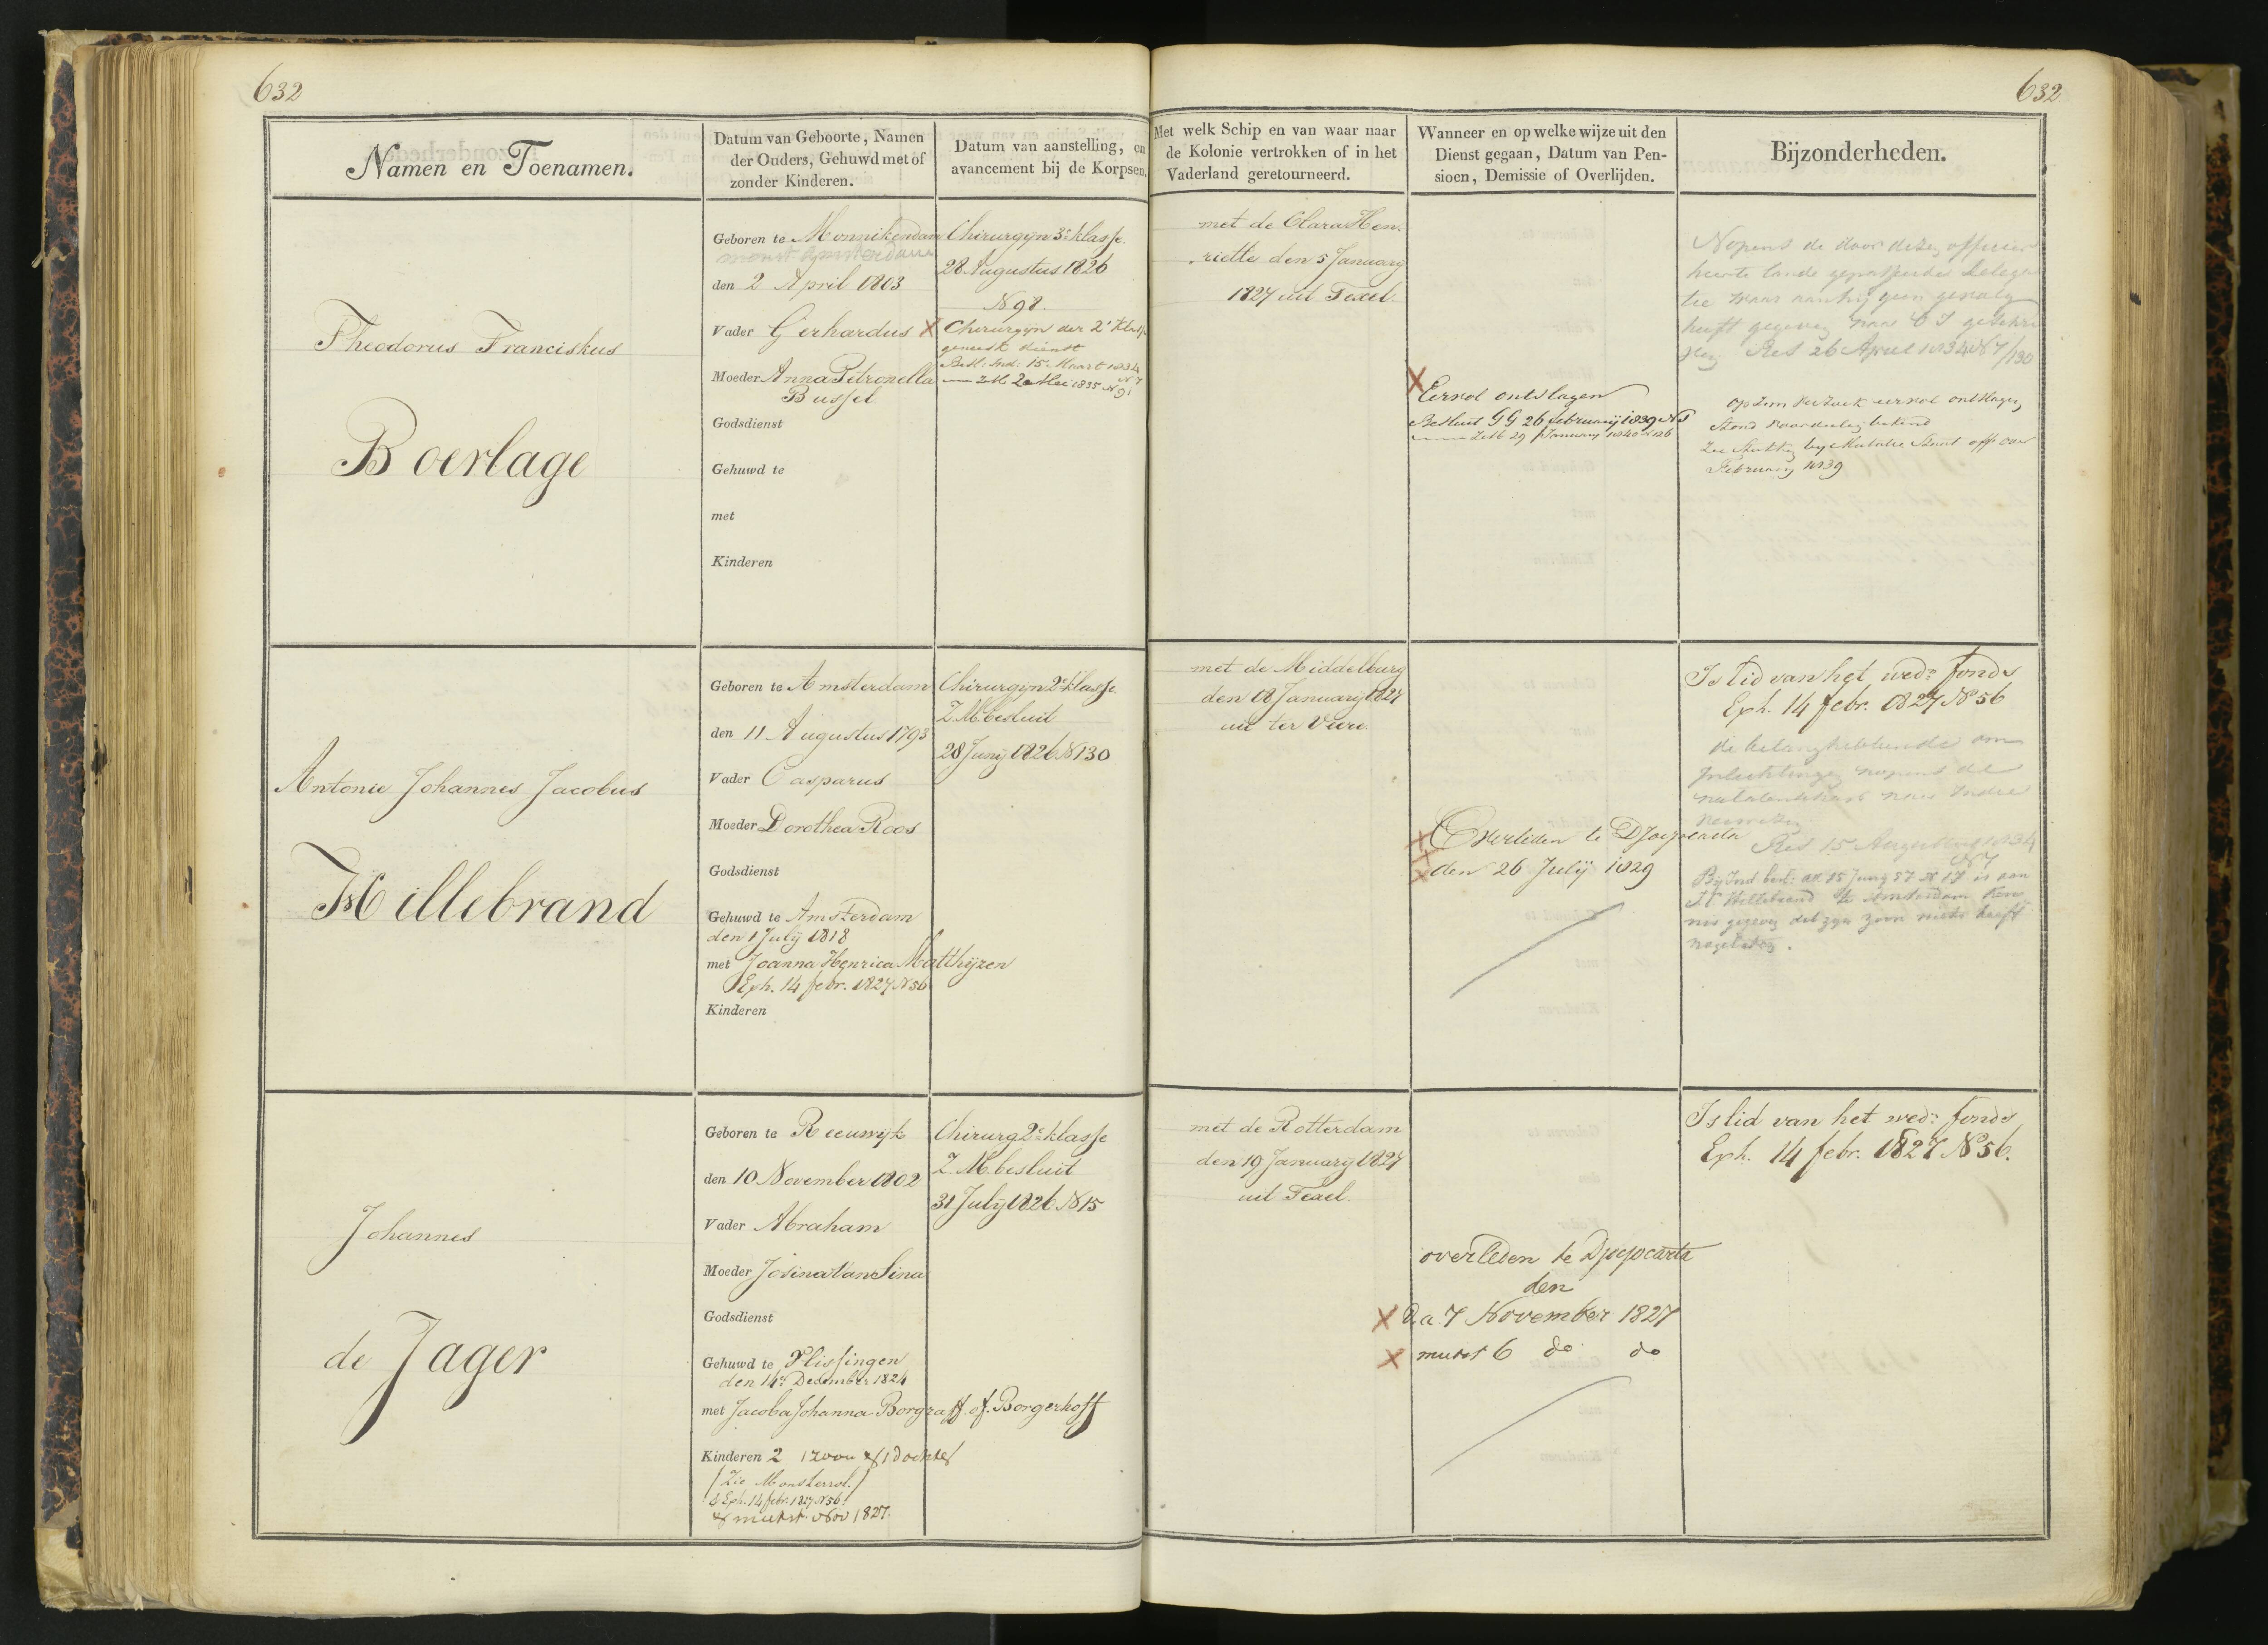 632
632
Namen en Toenamen.
Datum van Geboorte, Namen
der Ouders, Gehuwd met of
zonder Kinderen.
Datum van aanstelling, en
avancement bij de Korpsen.
Met welk Schip en van waar naar
de Kolonie vertrokken of in het
Vaderland geretourneerd.
Wanneer en op welke wijze uit den
Dienst gegaan, Datum van Pen-
sioen, Demissie of Overlijden.
Bijzonderheden.
Theodorus Franciskus
Boerlage
Geboren te Monnikendam
monst Amsterdam
den 2 April 1803
Vader Gerhardus
Moeder Anna Petronella
Bussel
Godsdienst
Gehuwd te
met
Kinderen
Chirurgyn 3e klasse.
28 Augustus 1826
N 98.
X Chirurgyn der 2e Klasse
geneesk dienst
Besl: Ind: 15 Maart 1834
N 7
ZM 20 Mei 1835 N 91
met de Clara Hen-
riette den 5 January
1827 uit Texel.
X Eervol ontslagen
Besluit GG 26 February 1839 N 5
ZM 29 January 1840 N 126
Nopens de door dezen officier
hier te lande
waar aan hij geen gevolg
heeft gegeven naar O I
Res 26 April 1834 N 7/130
op zijn verzoek eervol ontslagen,
Stond voordeelig bekend
Zie by Mutatie Staat off over
February 1839
Antonie Johannes Jacobus
Hillebrand
Geboren te Amsterdam
den 11 Augustus 1793
Vader Casparus
Moeder Dorothea Roos
Godsdienst
Gehuwd te Amsterdam
den 1 July 1818
met Joanna Henrica Matthyzen
Exh. 14 febr. 1827 N 56
Kinderen
Chirurgyn 2e klasse
Z.M. besluit
28 Juny 1826 N 130
met de Middelburg
den 18 January 1827
uit ter Veere.
X Overleden te Djocjocarta
X den 26 July 1829
Is lid van het wed: fonds
Exh. 14 febr. 1827 N 56
de belanghebbende om
inlichtingen nopens de
nalatenschap naar Indie
verwezen
Res 15 Augustus 1834
N 7
By Ind besl: dd 15 Juny 37 N 17 is aan
Hillebrand te Amsterdam ken
nis gegeven dat zyn zoon niets heeft
nagelaten.
Johannes
de Jager
Geboren te Reeuwyk
den 10 November 1802
Vader Abraham
Moeder Josina Van Sina
Godsdienst
Gehuwd te Vlissingen
den 14n December 1824
met Jacoba Johanna Borgraff of Borgerhoff
Kinderen 2 1 zoon & 1 dochter
(Zie Monsterrol.)
& Exh. 14 febr. 1827 N 56.
& mutst. Nov 1827.
Chirurg 2e klasse
Z.M. besluit
31 July 1826 N 15
met de Rotterdam
den 19 January 1827
uit Texel.
overleden te Djocjocarta
den
X 7 November 1827
X mutst 6 do do
Is lid van het wed: fonds
Exh. 14 febr. 1827 N 56.